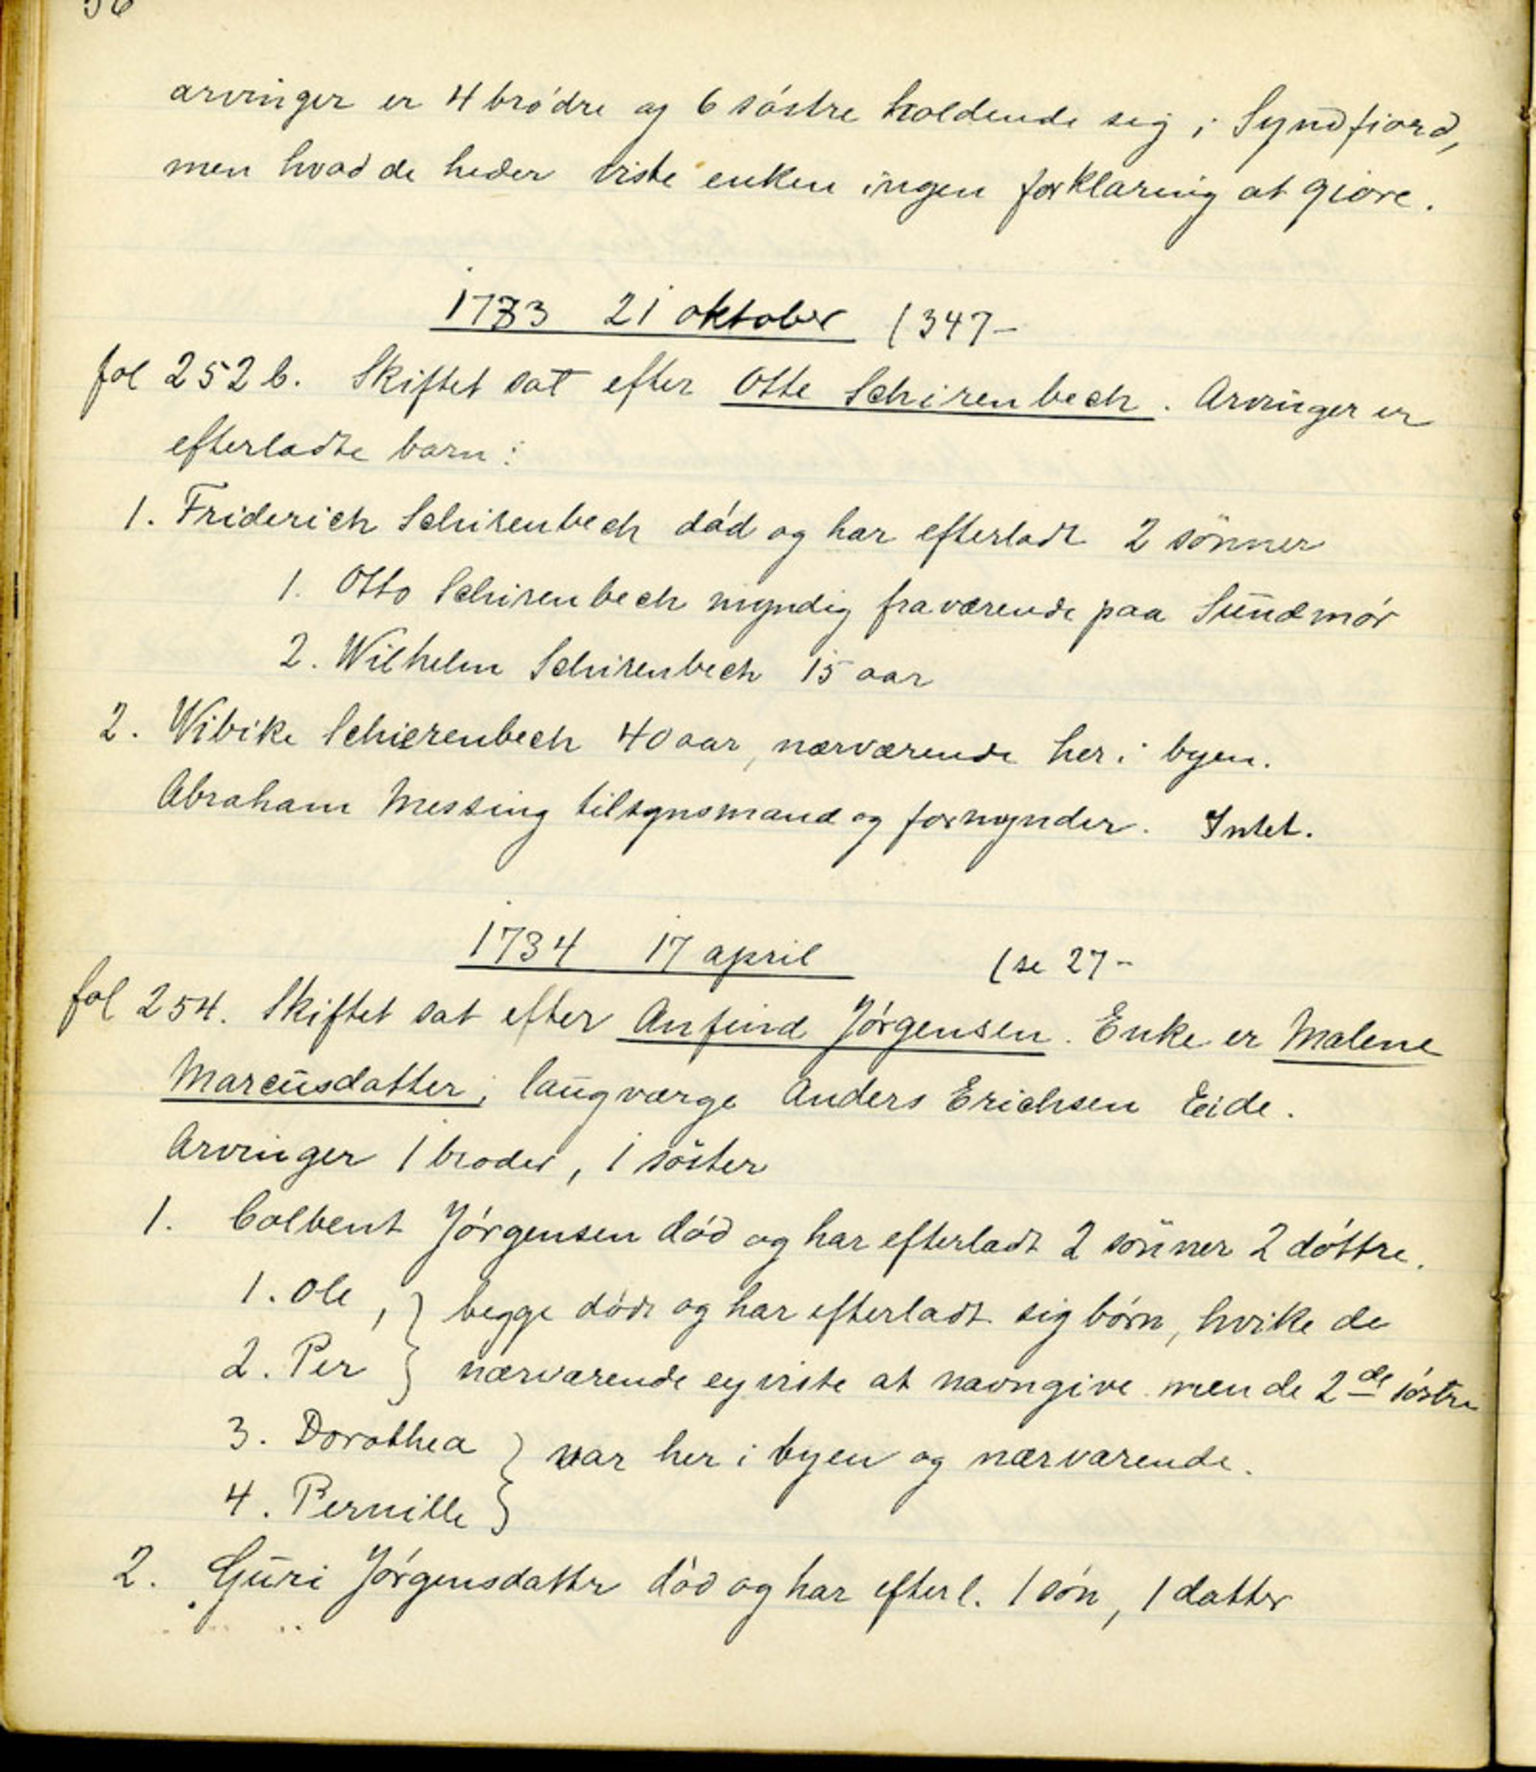 arvinger er 4 brødre og 6 søstre holdende sig i Syndfiord,
men hvad de heder viste enken ingen forklaring at giøre.
1733 21 oktober (347-
fol 252 b. Skiftet sat efter Otte Schirenbech. Arvinger er
efterladte barn:
1. Friderich Schirenbech død og har efterladt 2 sönner
1. Otto Schirenbech myndig fraværende paa Sündmør
2. Wilhelm Schirenbech 15 aar
2. Wibike Schierenbech 40 aar, nærværende her i byen.
Abraham Messing tilsynsmand og formynder. Intet.
1734 17 april (se 27-
fol 254. Skiftet sat efter Anfind Jørgensen. Enke er Malene
Marcüsdatter, laügværge Anders Erichsen Eide.
Arvinger 1 broder, 1 söster
1. Colbent Jørgensen død og har efterladt 2 sönner 2 døttre.
1. Ole, } begge døde og har efterladt sig børn, hvike de
2. Per } nærværende ey viste at navngive men de 2de søstre
3. Dorothea } var her i byen og nærværende.
4. Pernille }
2. Güri Jørgensdattr død og har efterl. 1 søn, 1 datter